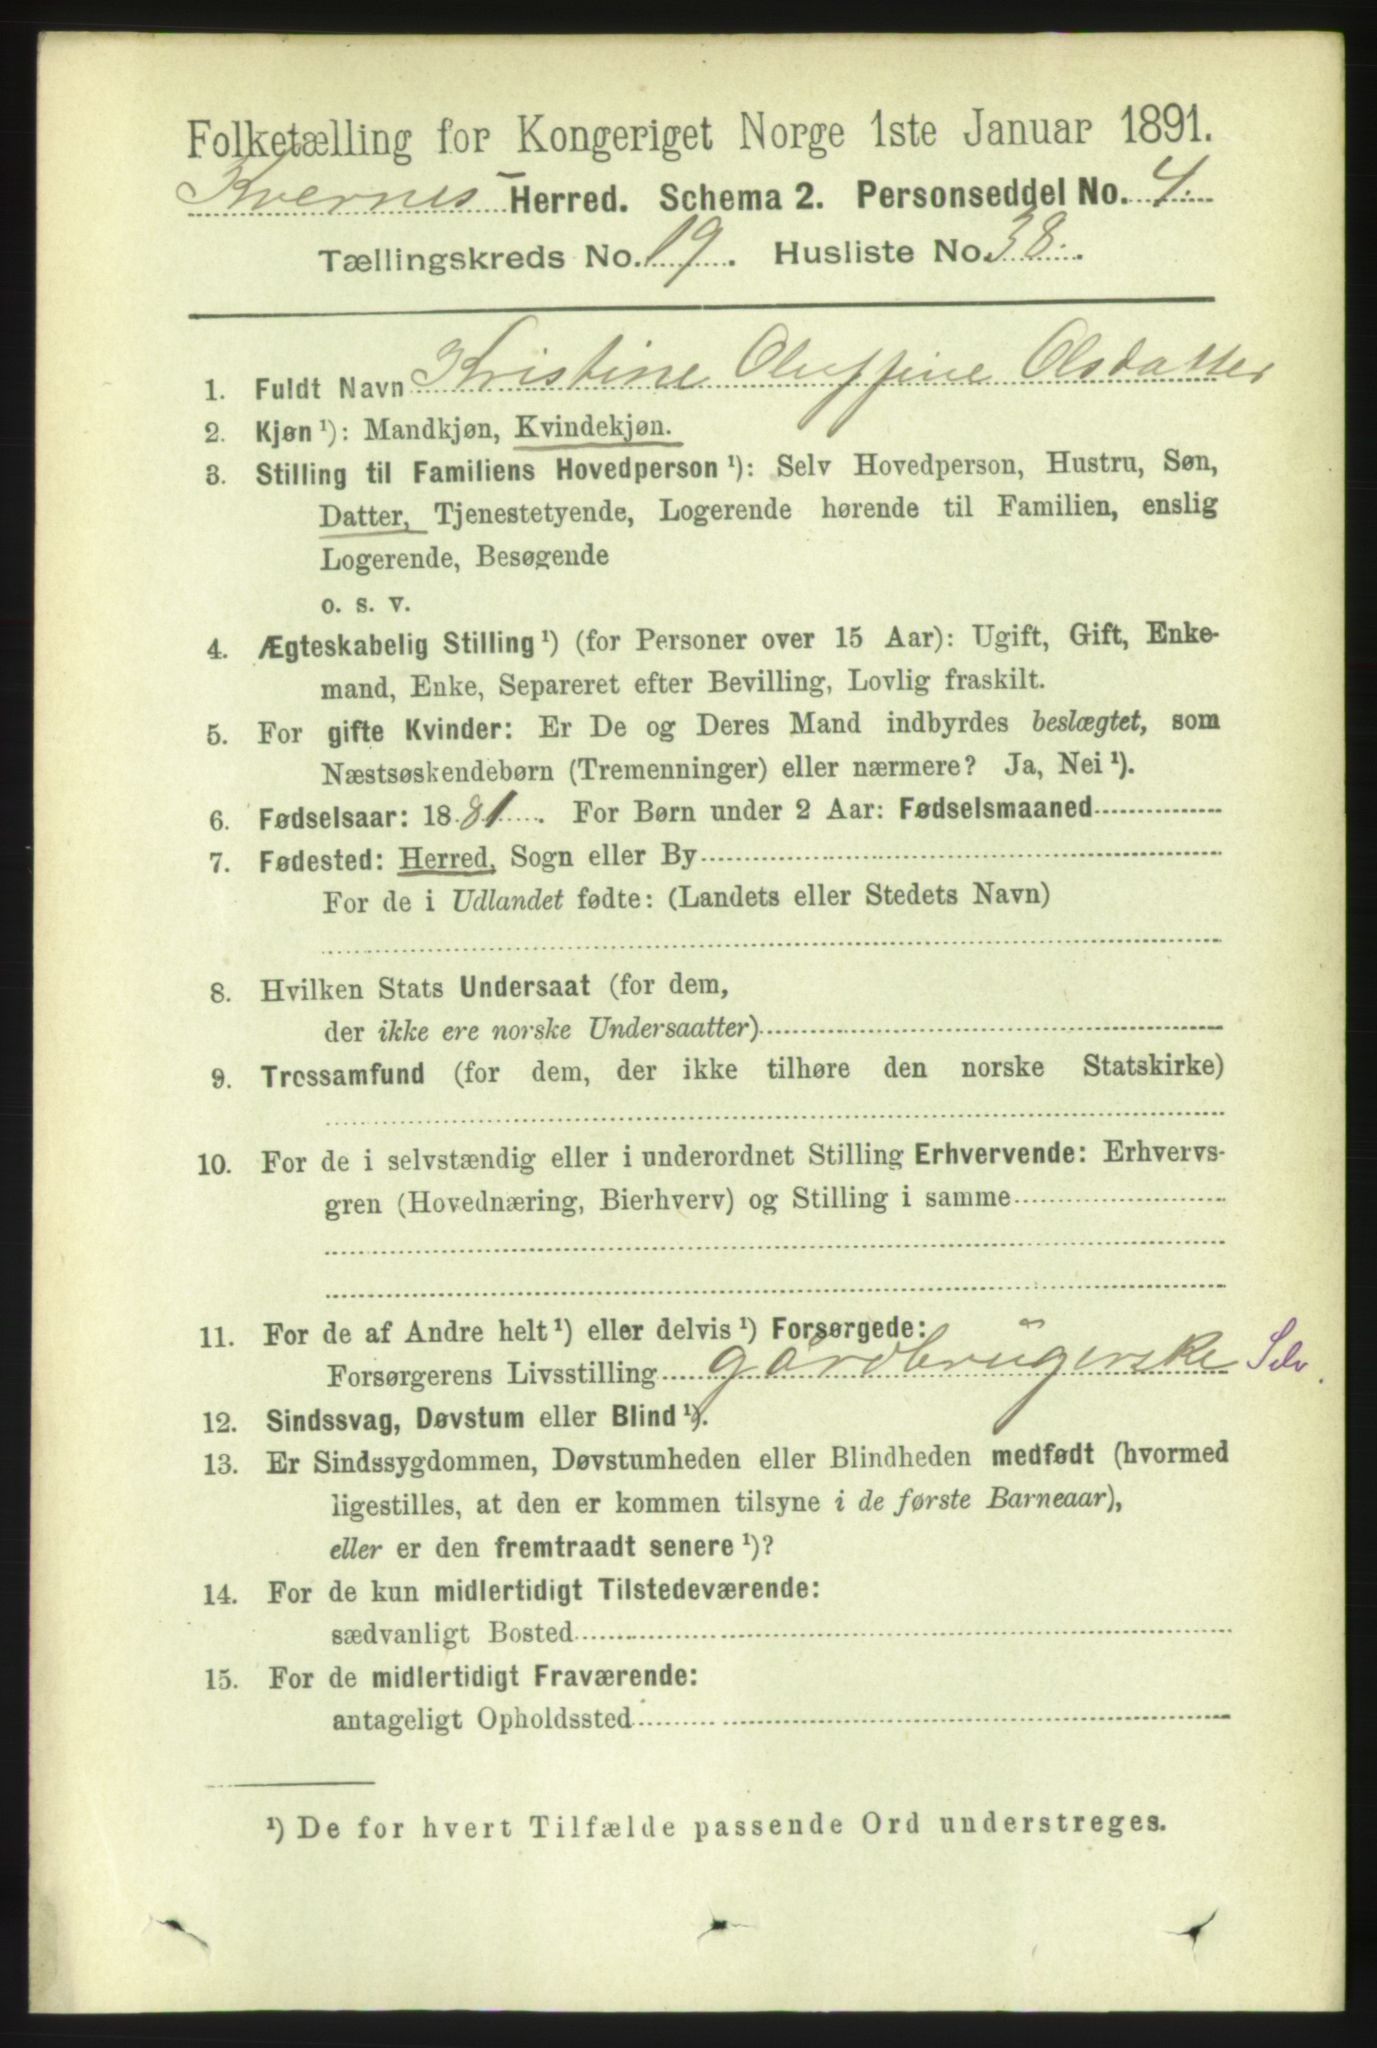 Folketælling for Kongeriget Norge 1ste Januar 1891.
Kvernes Herred. Schema 2. Personseddel No. 4.
Tællingskreds No. 19. Husliste No. 38.
1. Fuldt Navn Kristine Oluffine Olsdatter
2. Kjøn ¹): Mandkjøn, Kvindekjøn.
3. Stilling til Familiens Hovedperson ¹): Selv Hovedperson, Hustru, Søn,
Datter, Tjenestetyende, Logerende hørende til Familien, enslig
Logerende, Besøgende
o. s. v.
4. Ægteskabelig Stilling ¹) (for Personer over 15 Aar): Ugift, Gift, Enke-
mand, Enke, Separeret efter Bevilling, Lovlig fraskilt.
5. For gifte Kvinder: Er De og Deres Mand indbyrdes beslægtet, som
Næstsøskendebørn (Tremenninger) eller nærmere? Ja, Nei ¹).
6. Fødselsaar: 1881. For Børn under 2 Aar: Fødselsmaaned
7. Fødested: Herred, Sogn eller By
For de i Udlandet fødte: (Landets eller Stedets Navn)
8. Hvilken Stats Undersaat (for dem,
der ikke ere norske Undersaatter)
9. Trossamfund (for dem, der ikke tilhøre den norske Statskirke)
10. For de i selvstændig eller i underordnet Stilling Erhvervende: Erhvervs-
gren (Hovednæring, Bierhverv) og Stilling i samme
11. For de af Andre helt ¹) eller delvis ¹) Forsørgede:
Forsørgerens Livsstilling gårdbrugerske Selv
12. Sindssvag, Døvstum eller Blind ¹).
13. Er Sindssygdommen, Døvstumheden eller Blindheden medfødt (hvormed
ligestilles, at den er kommen tilsyne i de første Barneaar),
eller er den fremtraadt senere ¹)?
14. For de kun midlertidigt Tilstedeværende:
sædvanligt Bosted
15. For de midlertidigt Fraværende:
antageligt Opholdssted
¹) De for hvert Tilfælde passende Ord understreges.